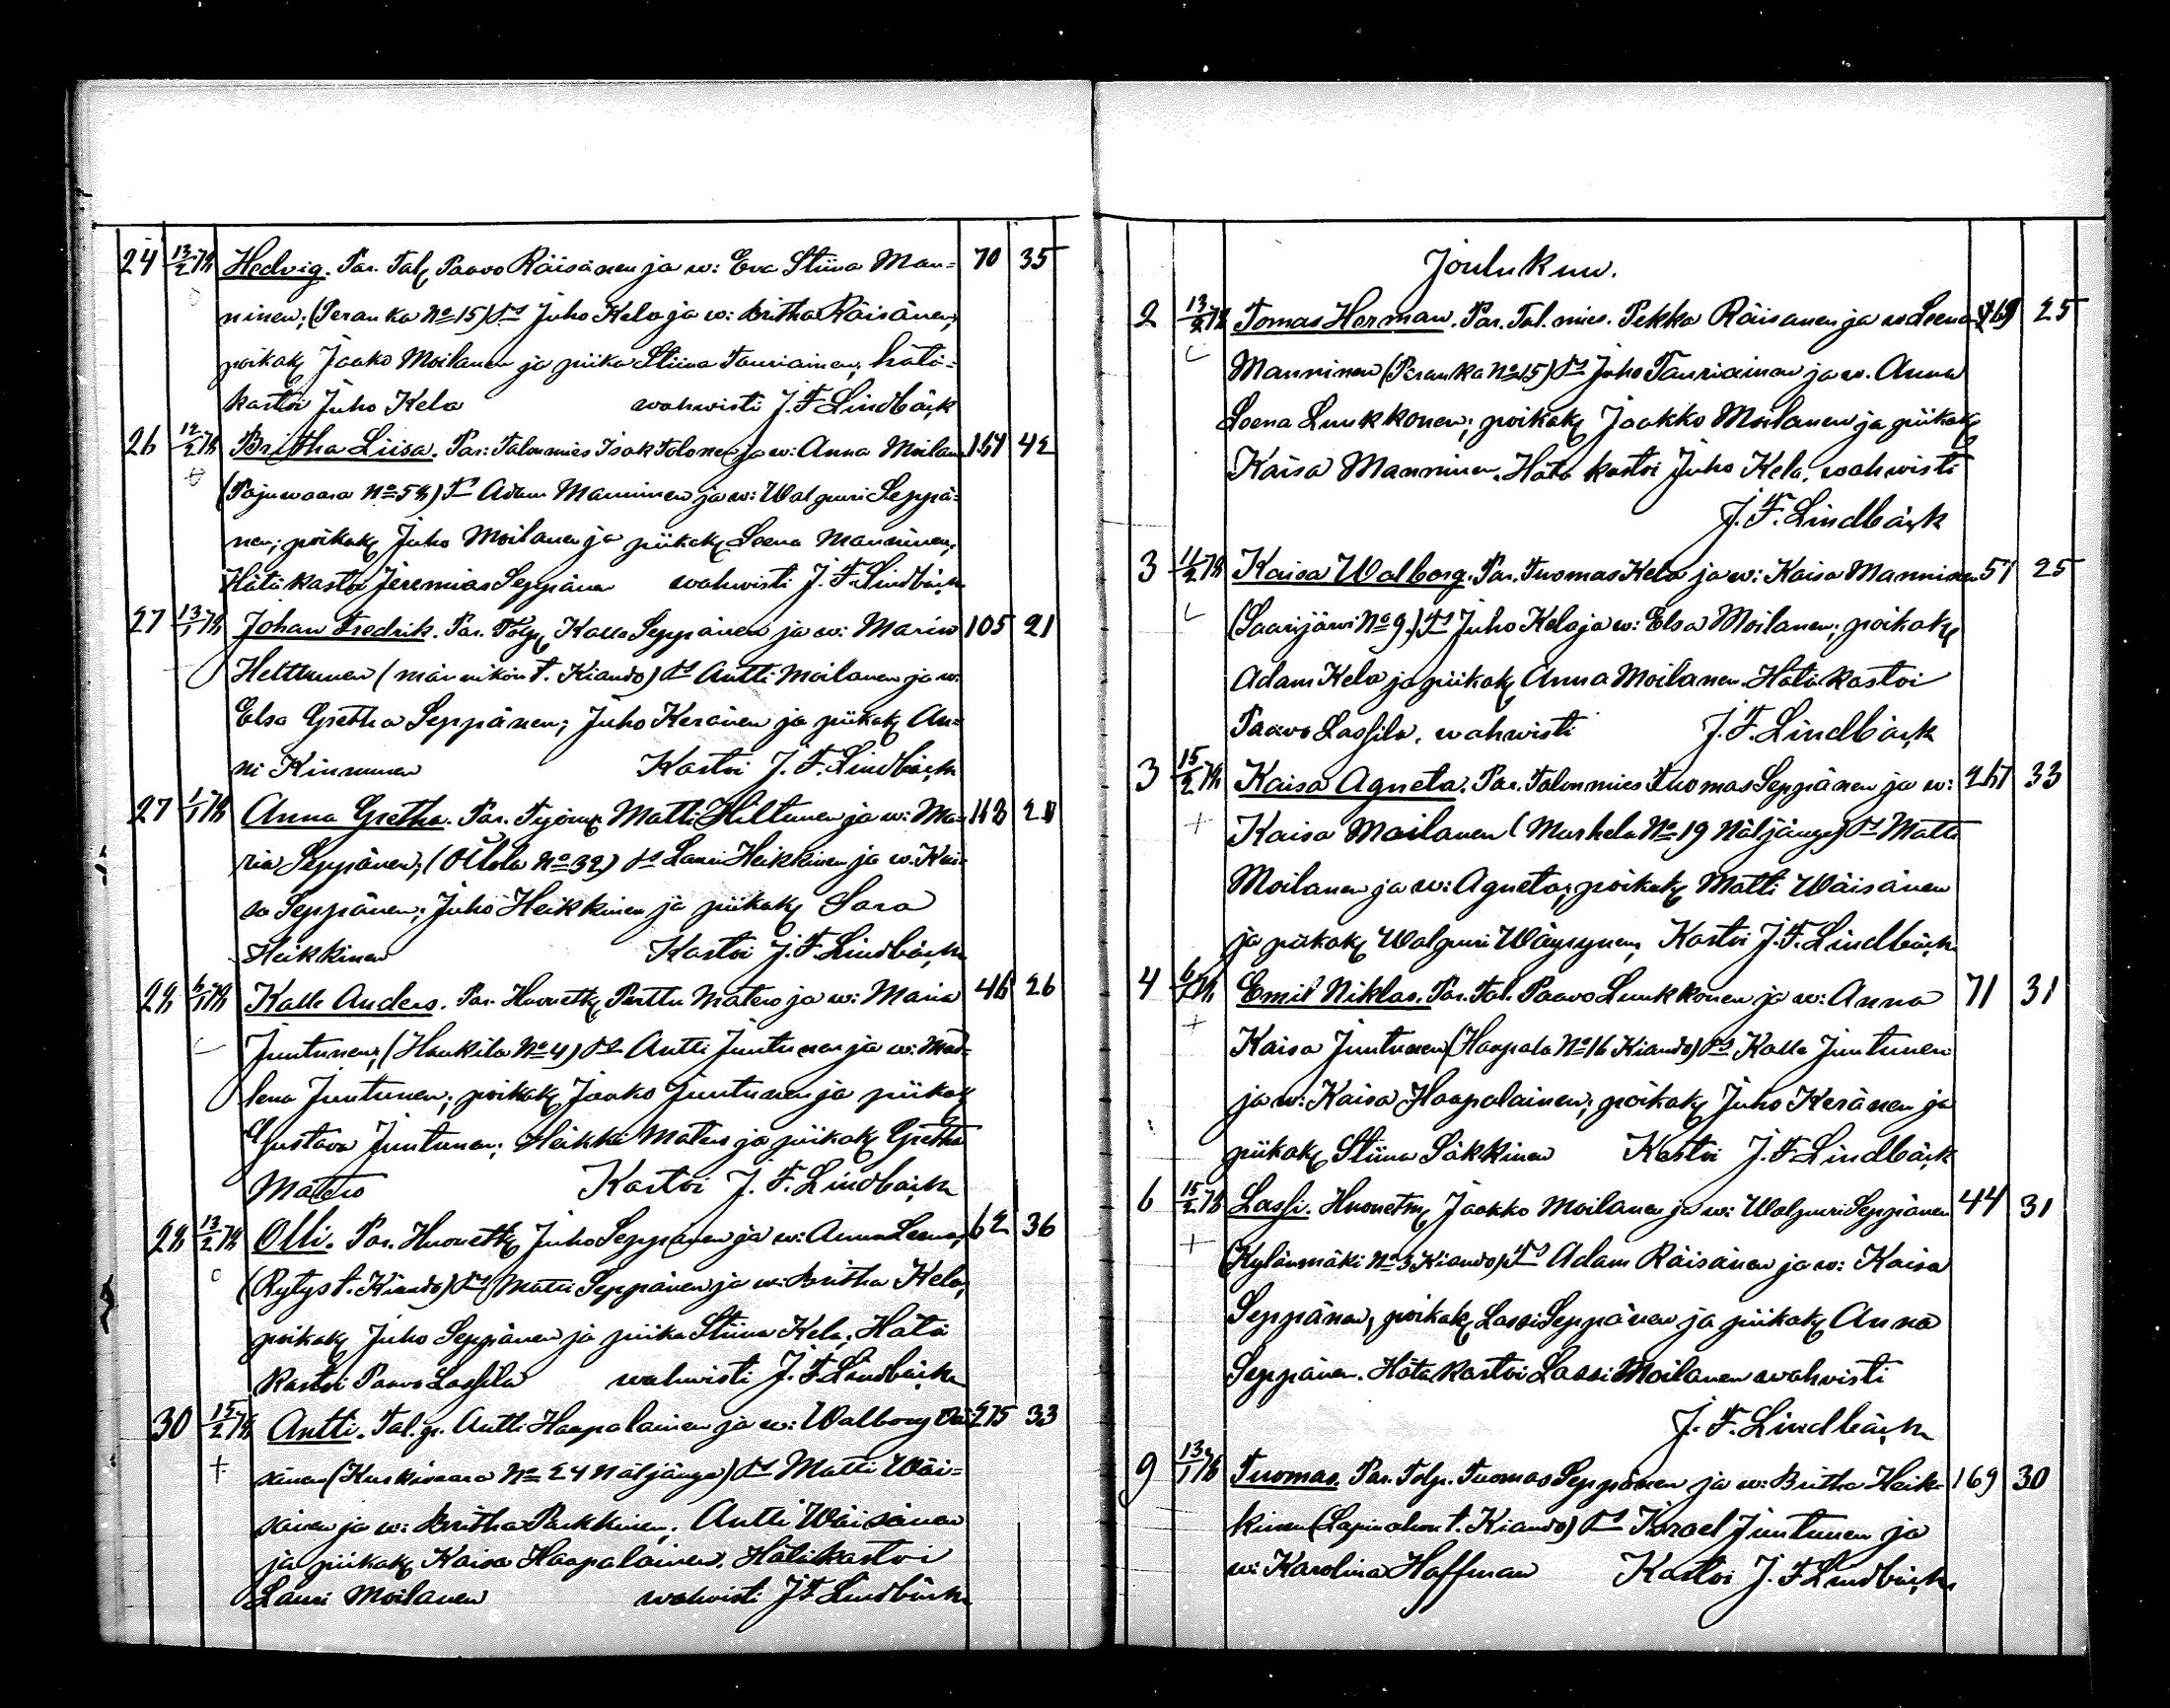 24 13/2 78 Hedvig. Par. Tal. Paavo Räisänen ja w: Eva Stiina Man= 70 35
ninen; (Peranka No 15) Ts Juho Kela ja w: Britha Räisänen;
poikak. Jaako Moilanen ja piika Stiina Tauriainen, hätä=
kastoi Juho Kela wahwisti J. F. Lindbäck
26 12/2 78 Britha Liisa. Par: Talonmies Isak Tolonen ja w: Anna Moilan 42
(Pajuwaara No 58) Ts Adam Manninen ja w: Walpuri Seppä=
nen; poikak. Juho Moilanen ja piikak. Leena Manninen,
Hätäkastoi Jeremias Seppänen wahwisti J. F. Lindbäck
27 13/1 78 Johan Fredrik. Par. Tolp. Kalle Seppänen ja w: Maria 105 21
Helttunen (männikön t. Kiando) Ts Antti Moilanen ja w.
Elsa Gretha Seppänen; Juho Keränen ja piikak. An=
ni Kinnunen Kastoi J. F. Lindbäck
27 1/1 78 Anna Gretha. Par. Työm. Matti Hiltunen ja w: Ma=
ria Seppänen; (Ollola No 32) Ts Lauri Heikkinen ja w. Kai=
sa Seppänen; Juho Heikkinen ja piikak. Sara
Heikkinen Kastoi J. F. Lindbäck
28 6/1 78 Kalle Anders. Par. Huonetk. Perttu Matero ja w: Maria 46 26
Juntunen; (Haukila No 4) Ts Antti Juntunen ja w: Mad=
lena Juntunen; poikak. Jaako Juntunen ja piikak
Gustava Juntunen; Heikki Matero ja piikak. Gretha
Matero Kastoi J. F. Lindbäck
28 13/2 78 Olli. Par. Huonetk. Juho Seppänen ja w: Anna Leena, 62 36
(Rytys t. Kiando) Ts Matti Seppänen ja w: Britha Kela,
poikak. Juho Seppänen ja piika Stiina Kela. Hätä
kastoi Paavo Lassila wahwisti J. F. Lindbäck
30 15/2 78 Antti. Tal. p. Antti Haapalainen ja w: Walborg Wäi 275 33
sänen (Kuskiwaara No 24 Näljänge) Ts Matti Wäi=
sänen ja w: Britha Parkkinen. Antti Wäisänen
ja piikak. Kaisa Haapalainen. Hätäkastoi
Lauri Moilanen wahvisti J. F. Lindbäck
Joulukuu.
2 13/2 78 Tomas Herman. Par. Tal. mies. Pekka Räisänen ja w Leena 169 25
Manninen (Peranka No 15) Ts Juho Tauriainen ja w. Anna
Leena Luukkonen; poikak. Jaakko Moilanen ja piikak
Kaisa Manninen. Hätä kastoi Juho Kela, wahwisti
J. F. Lindbäck
3 11/2 78 Kaisa Walborg. Par. Tuomas Kela ja w: Kaisa Manninen 57 25
(Saarijärvi No 9.) Ts Juho Kela ja w: Elsa Moilanen; poikak.
Adam Kela ja piikak. Anna Moilanen. Hätäkastoi
Paavo Lassila. wahwisti J. F. Lindbäck
3 15/2 78 Kaisa Agneta. Par. Talonmies Tuomas Seppänen ja w: 267 33
Kaisa Moilanen (Murhela No 19 Näljänge) Ts Matti
Moilanen ja w: Agneta; poikak. Matti Wäisänen
ja piikak. Walpuri Wäyrynen, Kastoi J. F. Lindbäck
4 6/1 78 Emil Niklas. Par. Tal. Paavo Luukkonen ja w: Anna 71 31
Kaisa Juntunen (Haapala No 16 Kiando) Ts Kalle Juntunen
ja w: Kaisa Haapalainen; poikak. Juho Keränen ja
piikak. Stiina Säkkinen Kastoi J. F. Lindbäck
6 15/2 78 Lassi. Huonetm. Jaakko Moilanen ja w: Walpuri Seppänen 44 31
(Kylänmäki No 3 Kiando) Ts Adam Räisänen ja w: Kaisa
Seppänen, poikak. Lassi Seppänen ja piikak. Anna
Seppänen. Hätäkastoi Lassi Moilanen wahvisti
J. F. Lindbäck
9 13/1 78 Tuomas. Par. Tolp. Tuomas Seppänen ja w: Britha Heik= 169 30
kinen (Lapinahon t. Kiando) Ts Israel Juntunen ja
w: Karolina Hoffman Kastoi J. F. Lindbäck